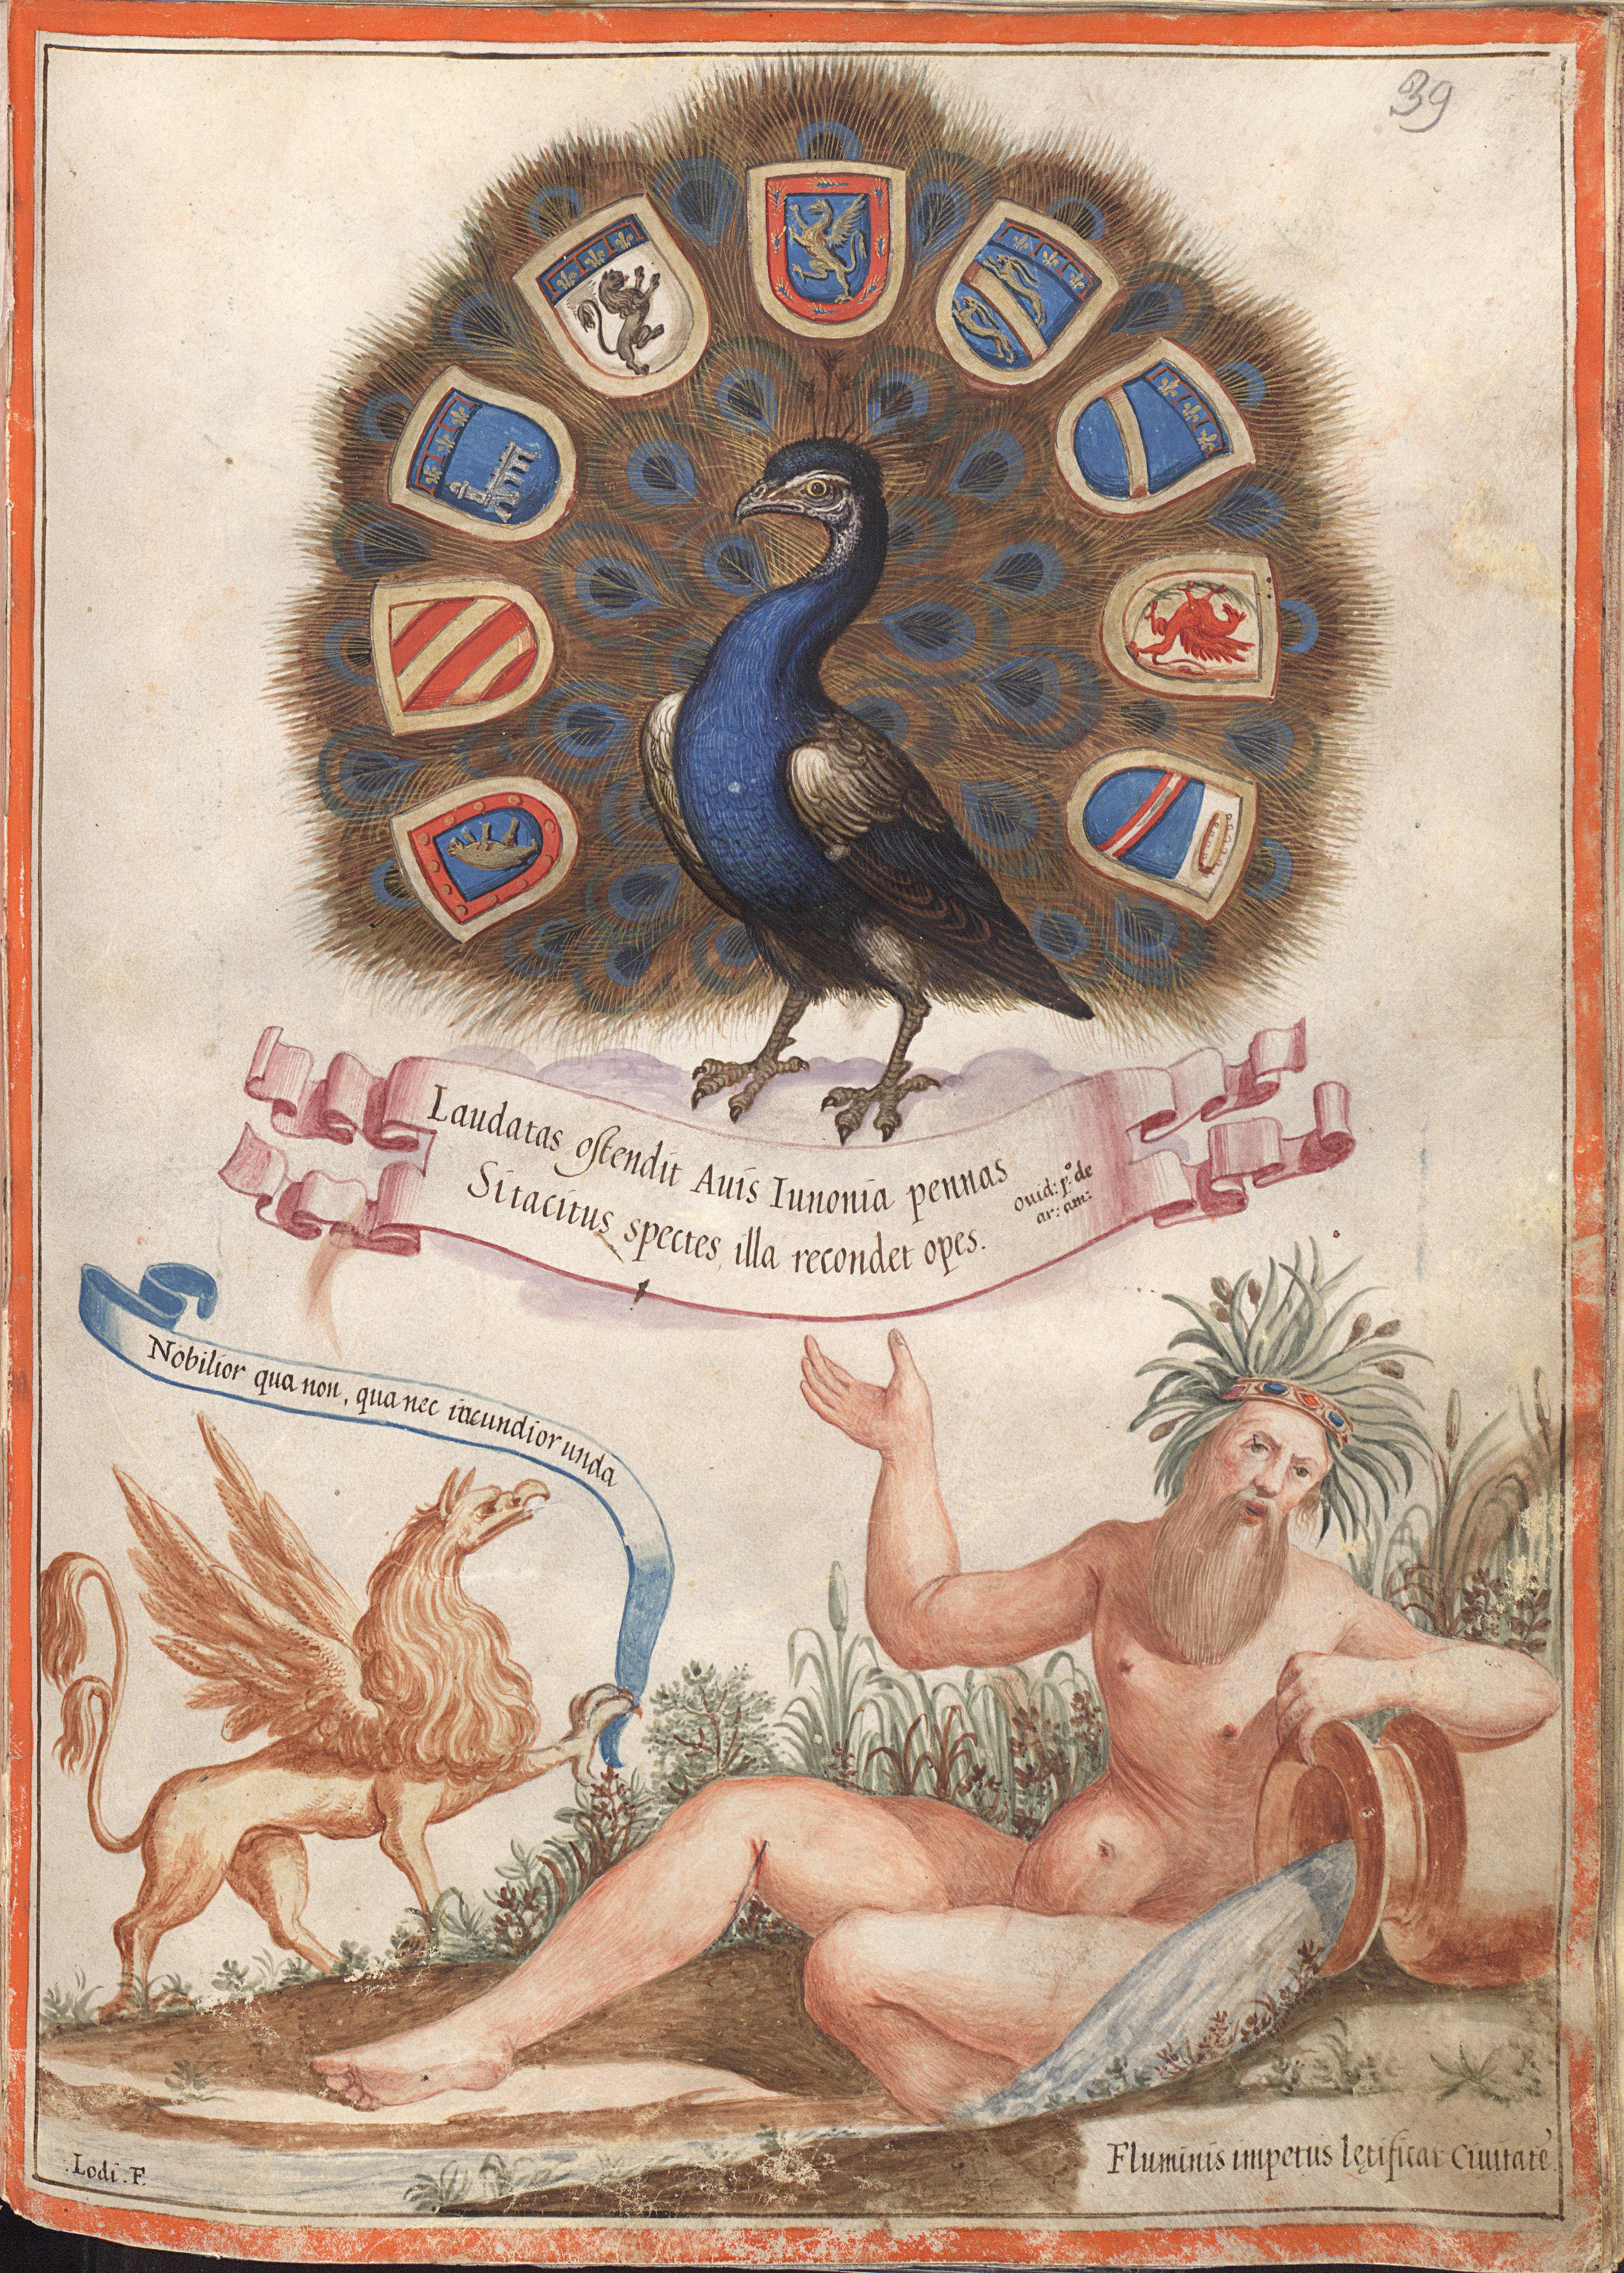 39
Laudatas ostendit Auis Iunonia pennas
Sitacitus spectes, illa recondet opes.
Ouid: p.º de
ar: am:
Nobilior qua non, qua nec iucundior unda
.Lodi. F.
Fluminis impetus lętificat Ciuitatē